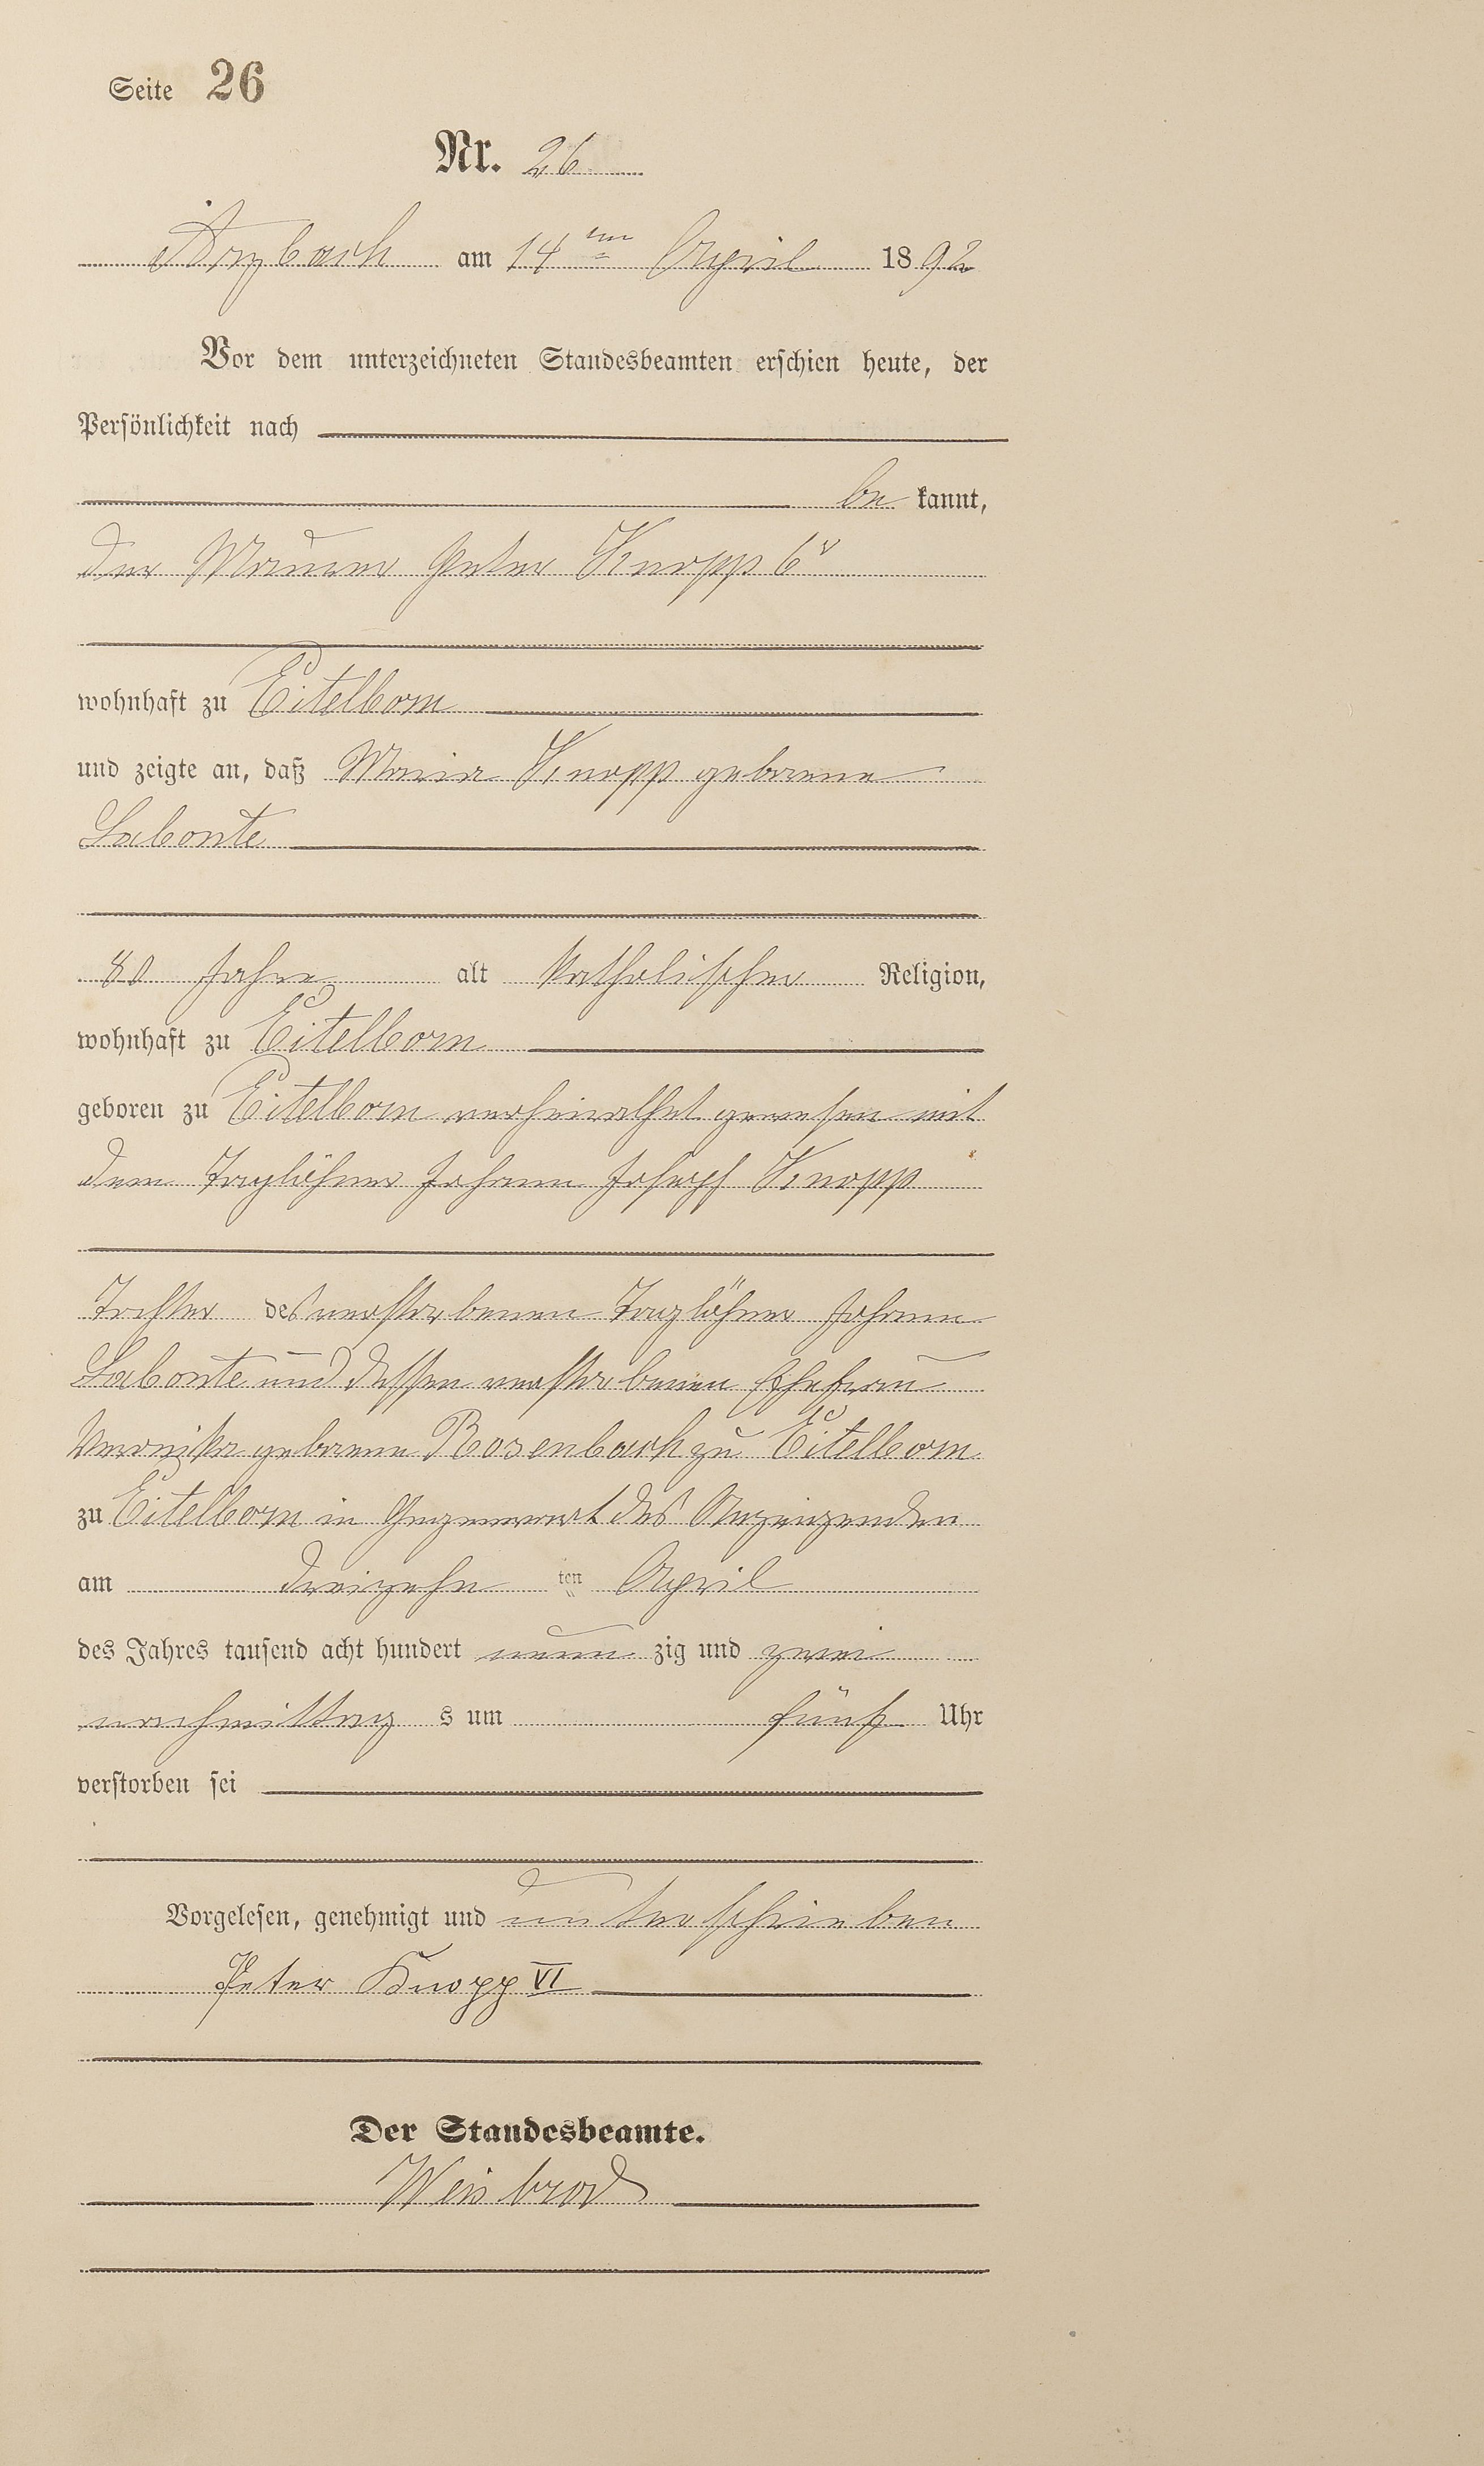 Seite 26
Nr. 26
Arzbach am 14ten April 1892
Vor dem unterzeichneten Standesbeamten erschien heute, der
Persönlichkeit nach
be kannt,
der Maurer Peter Knopp 6r
wohnhaft zu Eitelborn
und zeigte an, daß Maria Knopp geborene
Labonte
80 Jahre alt katholischer Religion,
wohnhaft zu Eitelborn
geboren zu Eitelborn verheirathet gewesen mit
dem Taglöhner Johann Joseph Knopp
Tochter des verstorbenen Taglöhner Johann
Labonte und dessen verstorbenen Ehefrau
Veronika geborene Rosenbach zu Eitelborn
zu Eitelborn in Gegenwart des Anzeigenden
am dreizehn ten April
des Jahres tausend acht hundert neun zig und zwei
nachmittag s um fünf Uhr
verstorben sei
Vorgelesen, genehmigt und unterschrieben
Peter Knopp VI
Der Standesbeamte.
Weisbrod